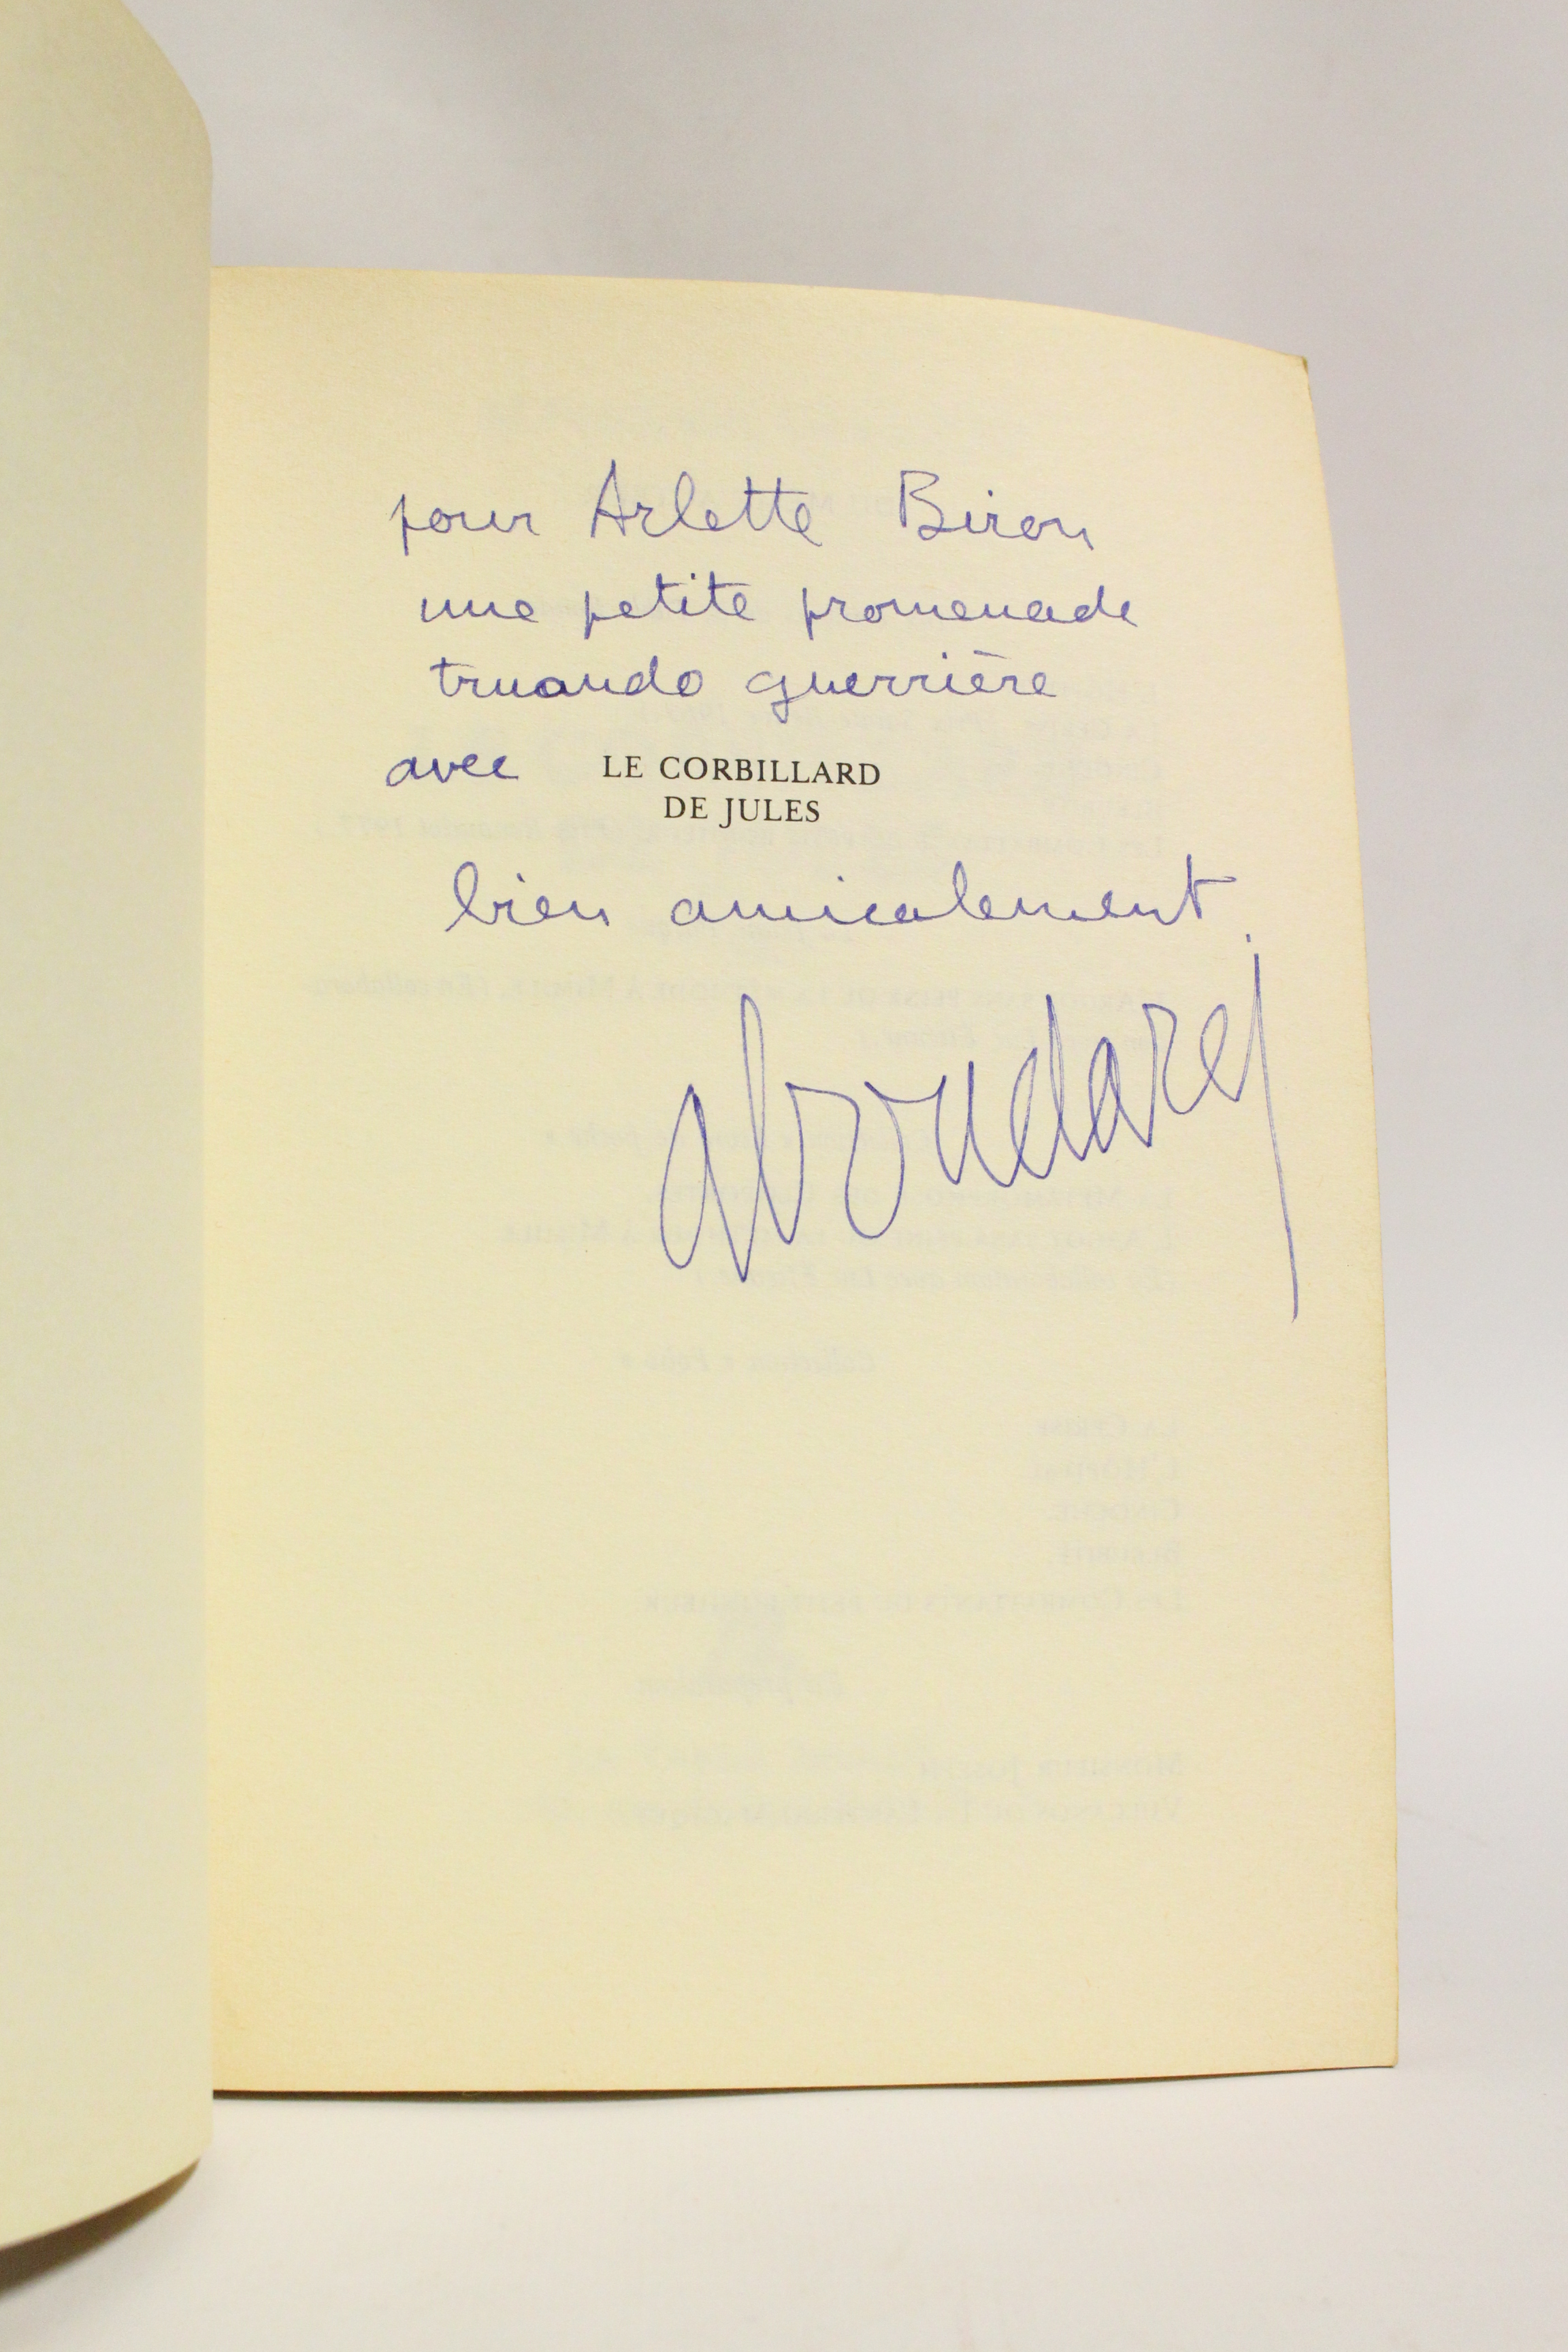 pour Arlette Biron
une petite promenade
truando guerrière
avec LE CORBILLARD
DE JULES
bien amicalement.
aboudard